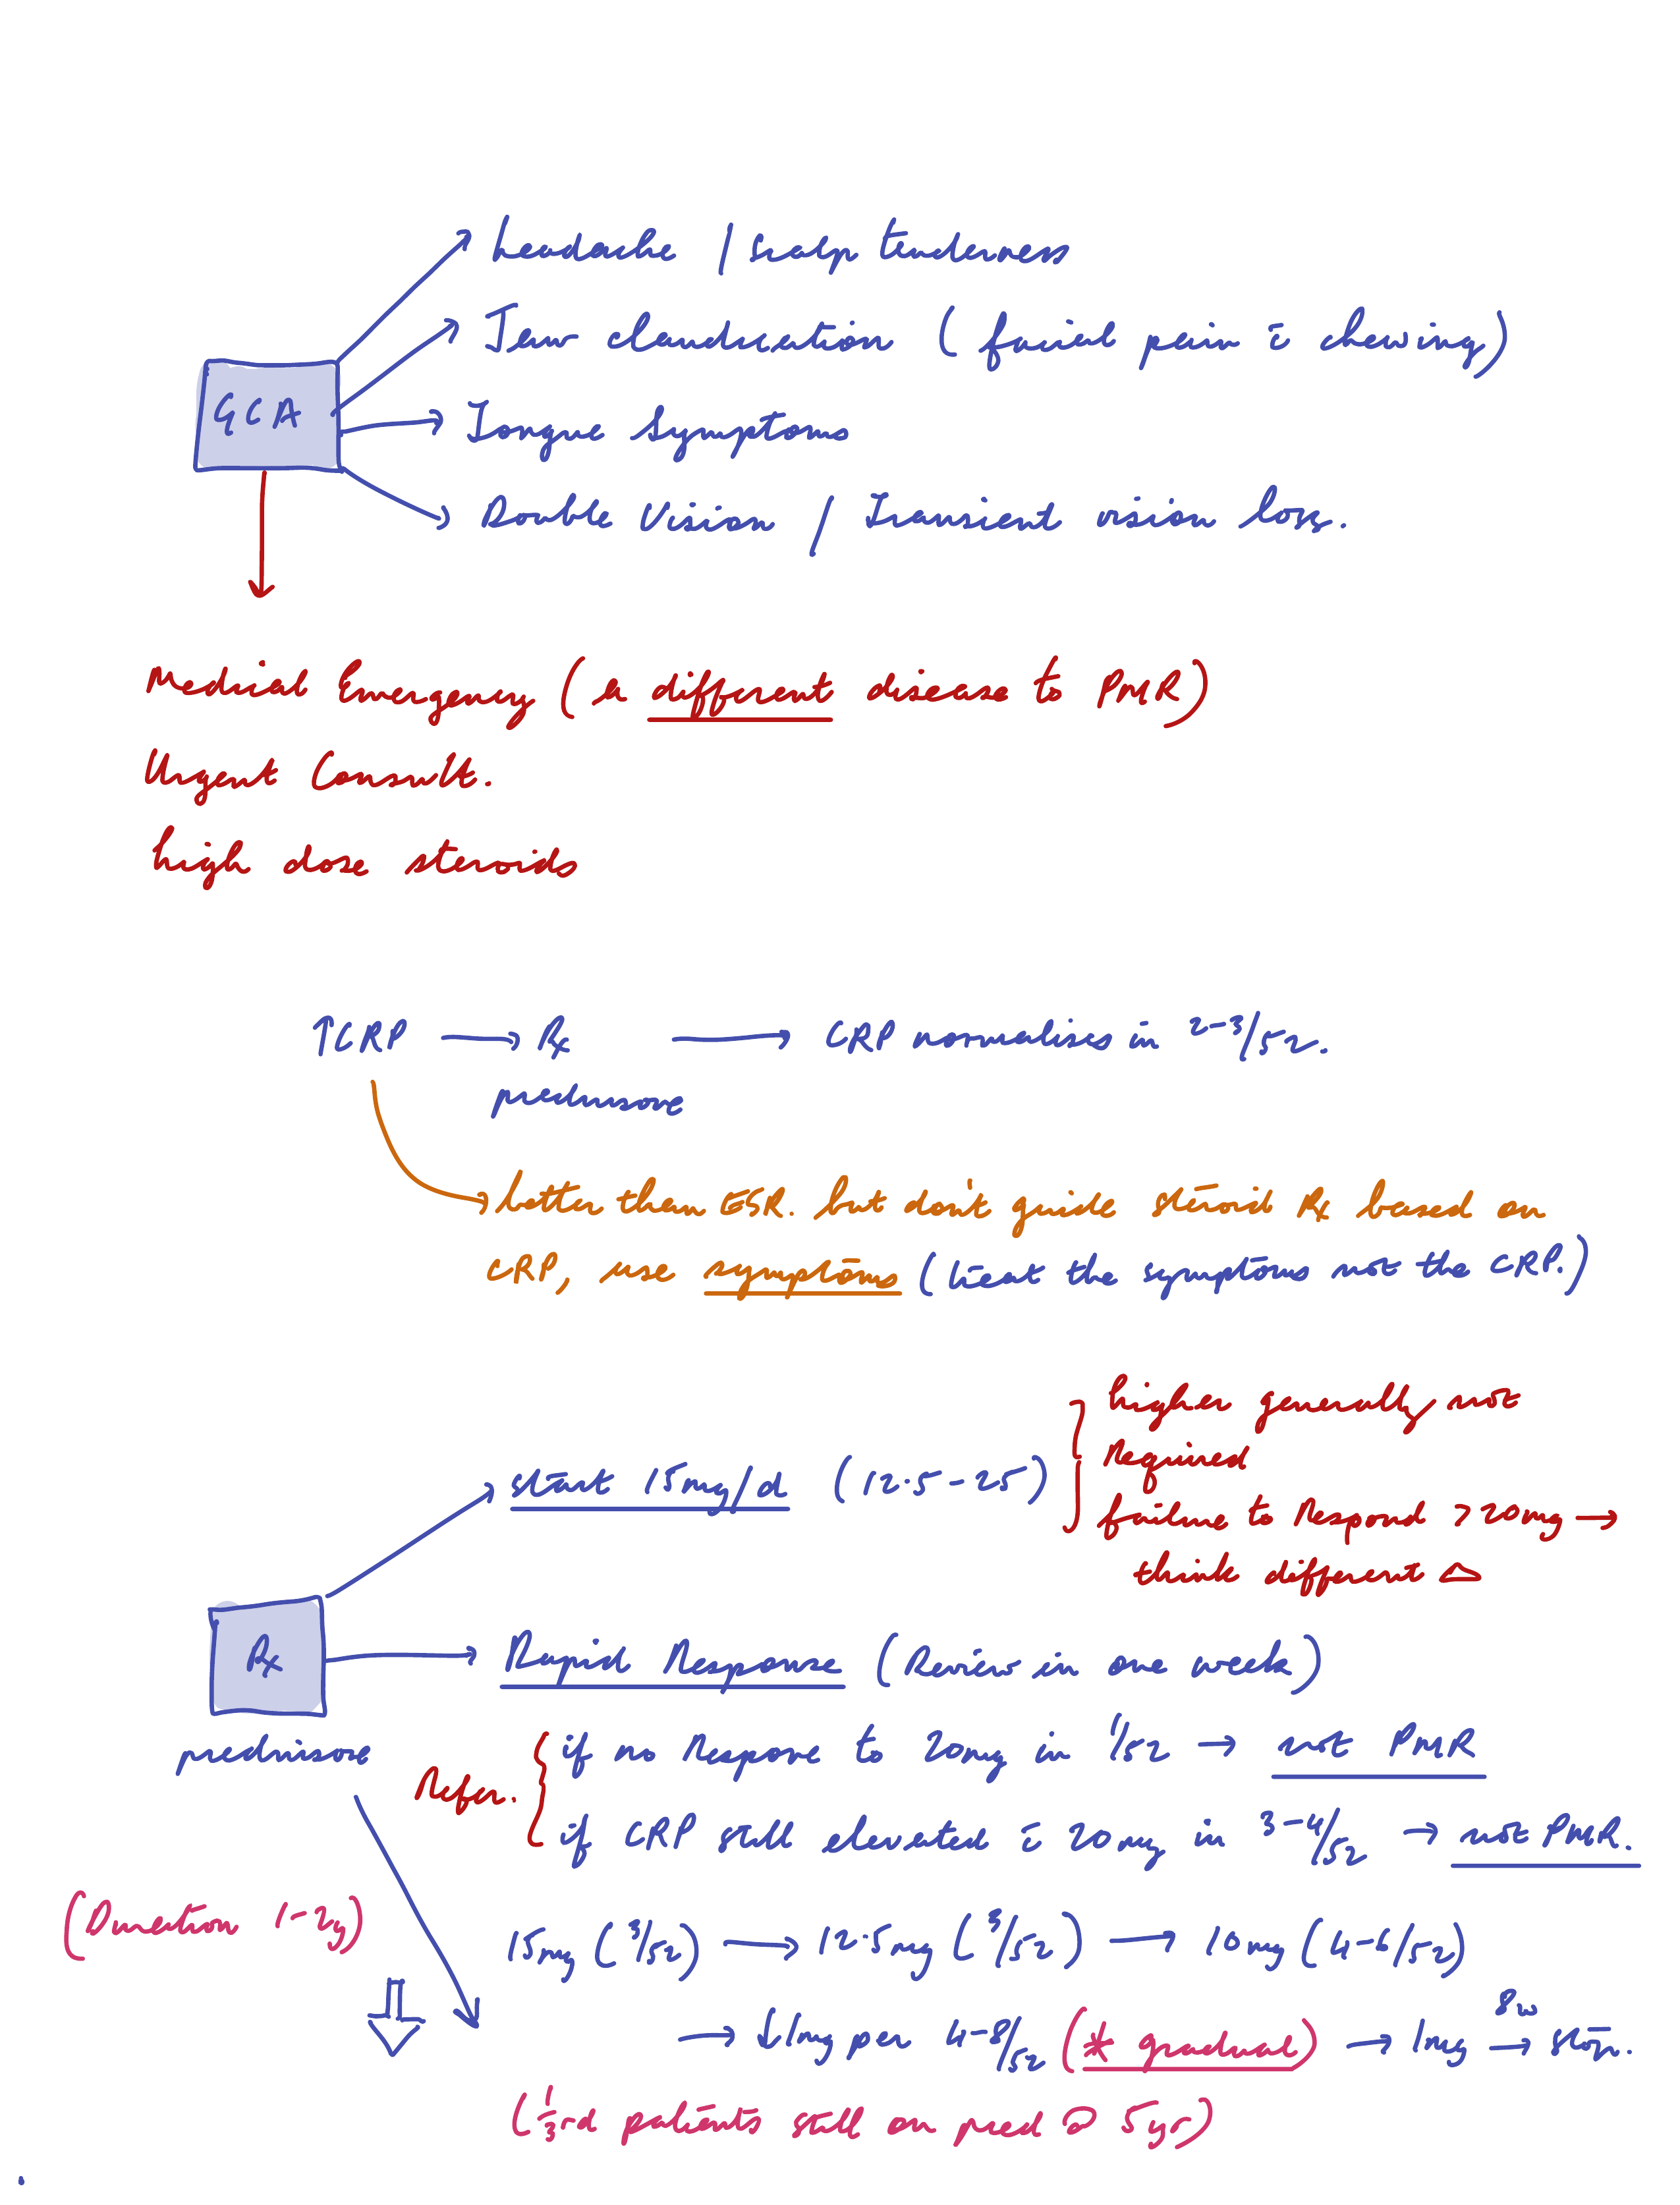 headache / scalp tenderness
Jaw claudication (facial pain c̄ chewing)
GCA
Tongue Symptoms
Double Vision / Transient vision loss.
Medical Emergency (a different disease to PMR)
Urgent Consult.
high dose steroids
↑CRP → Rx → CRP normalises in 2-3/52.
prednisone
better than ESR. but don't guide steroid Rx based on
CRP, use symptoms (treat the symptoms not the CRP.)
higher generally not
required
start 15mg/d (12.5-25)
failure to Respond >20mg →
think different △
Rx
Rapid Response (Review in one week)
prednisone
if no Respone to 20mg in 1/52 → not PMR
Refer.
if CRP still elevated c̄ 20mg in 3-4/52 → not PMR.
(Duration 1-2y)
15mg (3/52) → 12.5mg (3/52) → 10mg (4-6/52)
→ ↓1mg per 4-8/52 (* gradual) → 1mg 8w → stop.
(1/3rd patients still on pred @ 5yr)